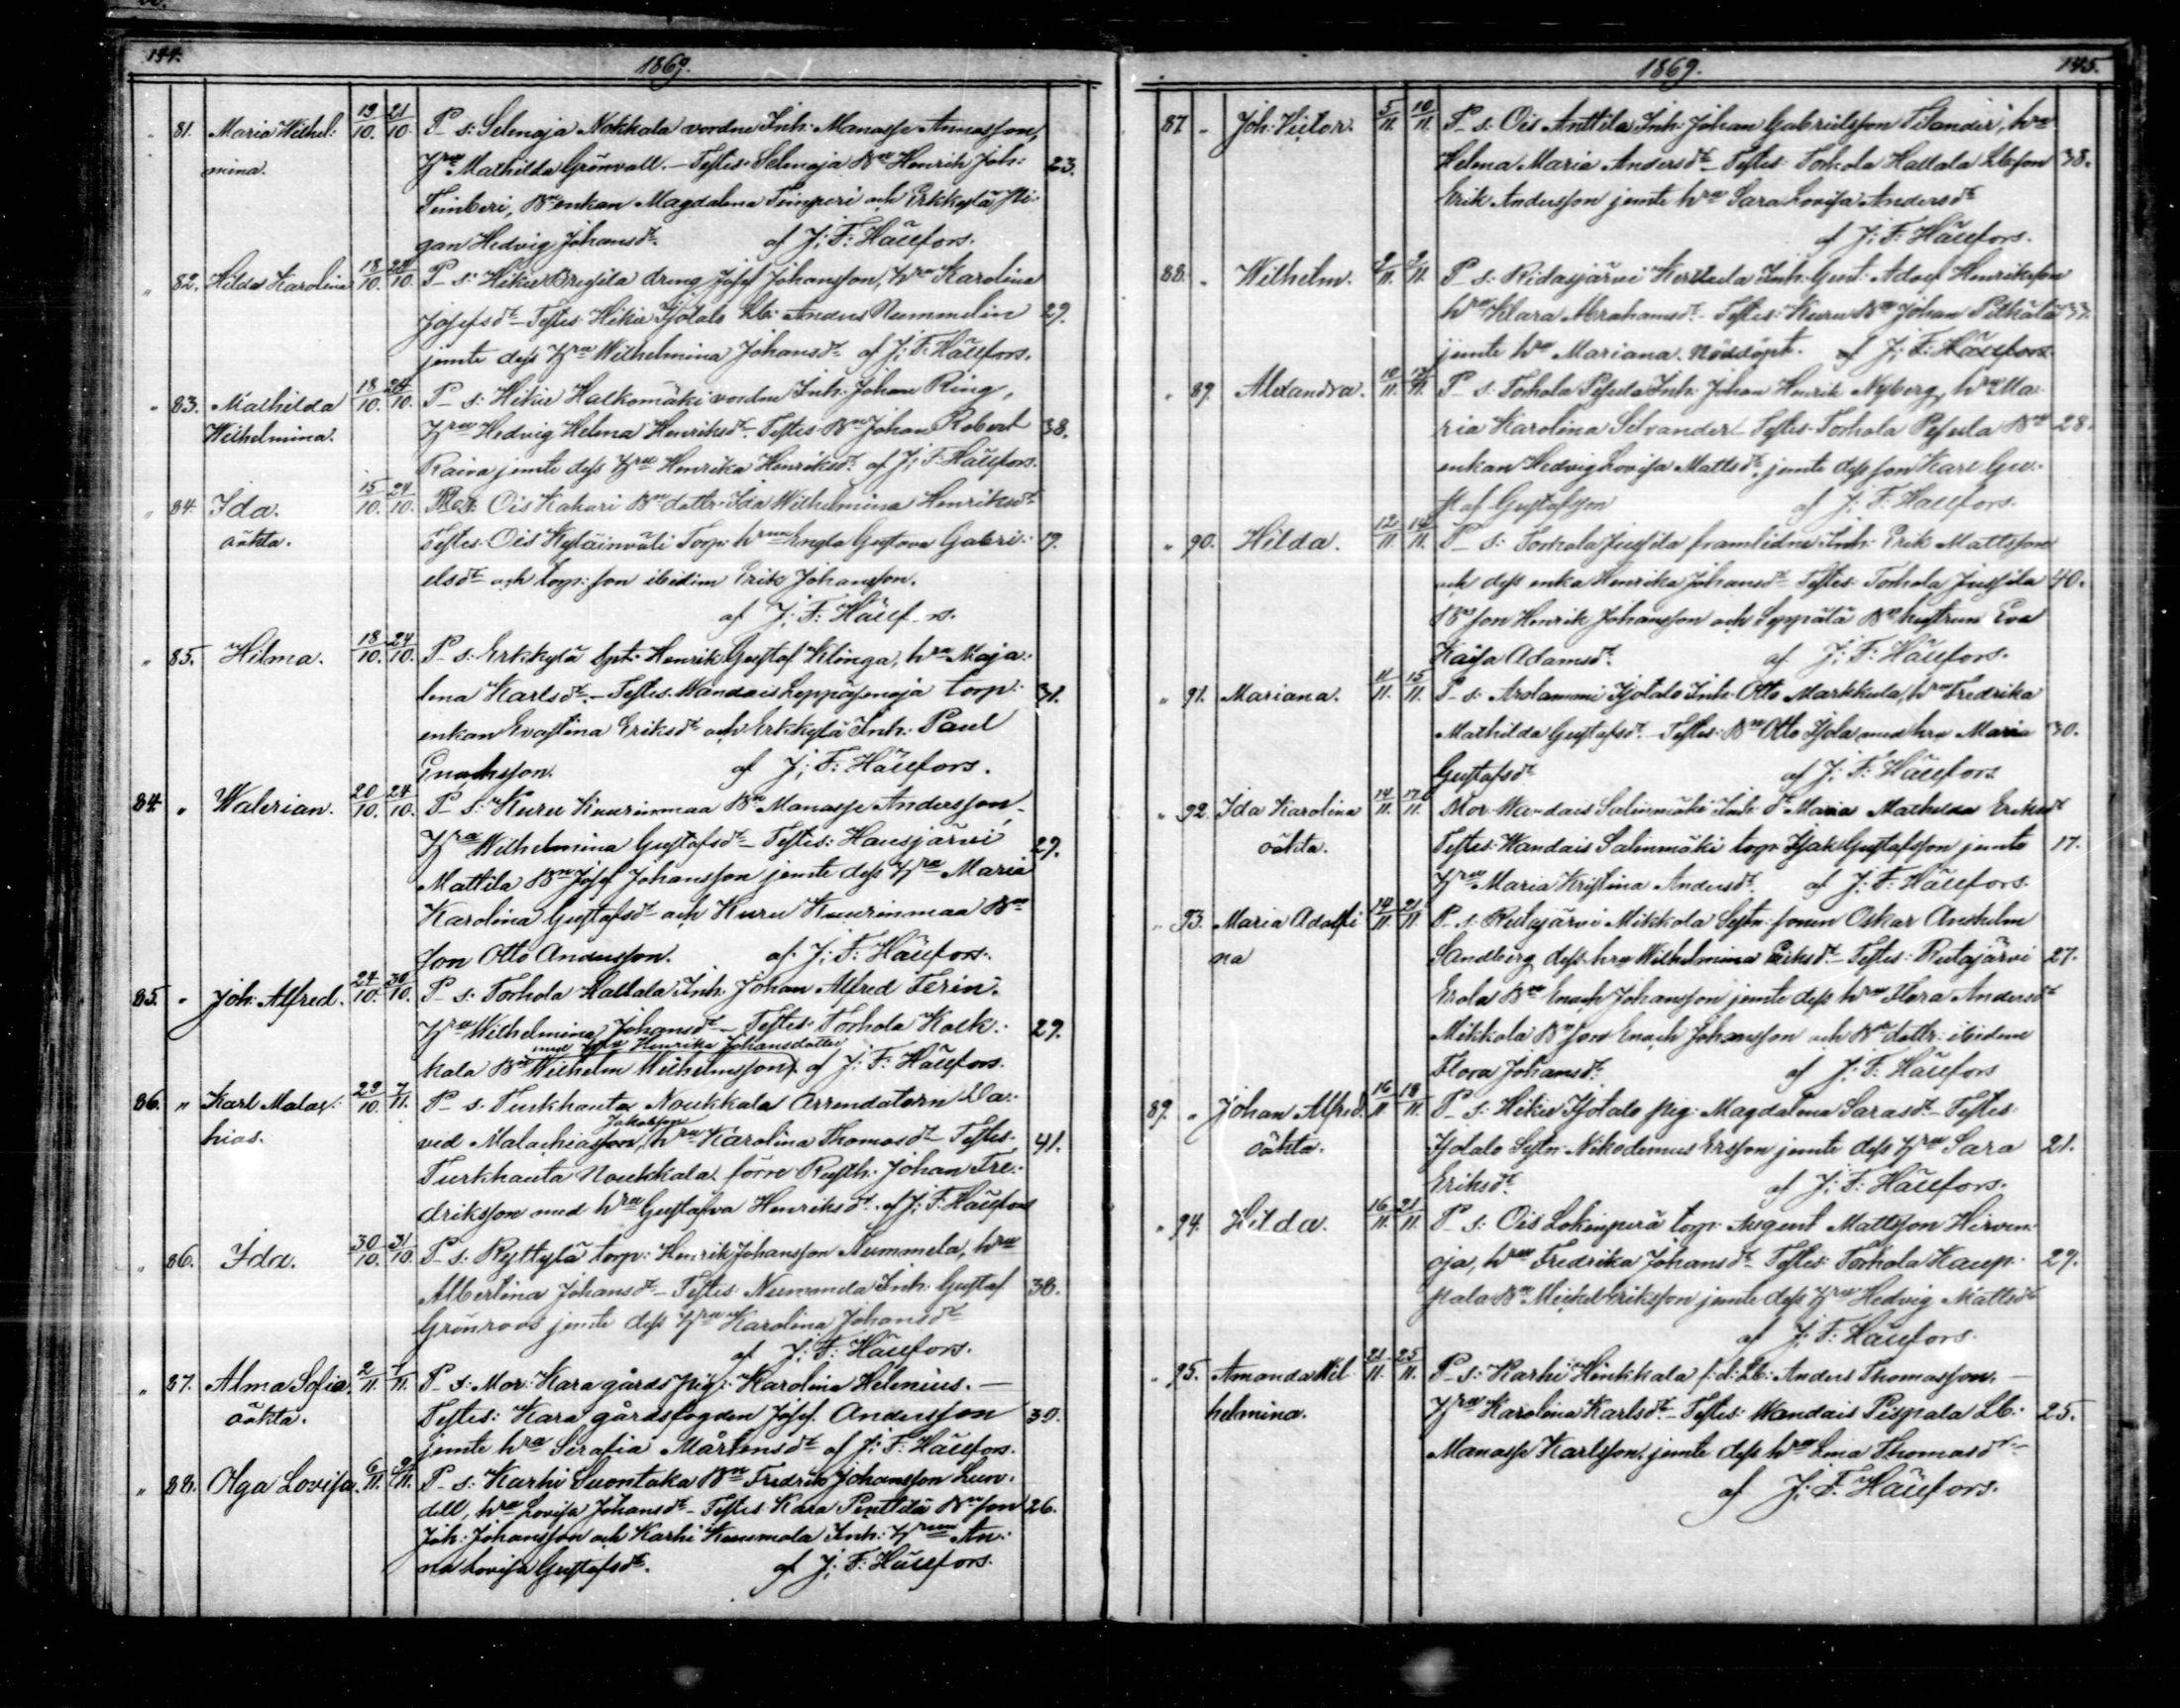 144.
1869.
" 81. Maria Wilhel: 19/10. 21/10. P_ s: Selenoja Nokkala vordne Inh: Manasse Annasson,
mina. Hru Mathilda Grönvall. – Testes: Selenoja Bn Henrik Joh: 23.
Timberi, Bn enkan Magdalena Timperi och Erkkylä pi-
gan Hedvig Johansdr. af J: F: Hällfors.
" 82. Hilda Karolina 18/10. 24/10. P_ s: Hikiä dreng Josef Johansson, hru Karolina
Josefsdr – Testes: Hikiä Isotalo Lb: Anders Nummelin 29.
jemte dess Hru Wilhelmina Johansdr af J: F: Hällfors.
" 83. Mathilda 18/10. 24/10. P_ s: Hikiä Halkomäki vordne Inh: Johan Ring,
Wilhelmina. Hru Hedvig Helena Henriksdr. Testes: Bn Johan Robert 38.
Raiva jemte dess Hru Henrika Henriksdr. af J: F: Hällfors.
" 84. Ida. 15/10. 24/10. Mor: Ois Kahari Bn dottr. Ida Wilhelmina Henriksdr
oäkta. Testes: Ois Kyläinväli Torp: hrun Engla Gustava Gabri- 19.
elsdr och torp: son ibidim Erik Johansson.
af J: F: Hällfors.
" 85. Hilma. 18/10. 24/10. P_ s: Erkkylä Spt: Henrik Gustaf Klinga, hru Maja
lena Karlsdr. – Testes: Wandais Leppäsenoja torp: 31.
enkan Evastina Eriksdr och Erkkylä Inh: Paul
Enochsson. af J: F: Hällfors.
84. " Walerian. 20/10. 24/10. P_ s: Kuru Kuurinmaa Bn Manasse Andersson,
Hru Wilhelmina Gustafsdr – Testes: Hausjärvi 29.
Mattila Bn Josef Johansson jemte dess Hru Maria
Karolina Gustafsdr och Kuru Kuurinmaa Bn
son Otto Andersson. af J: F: Hällfors.
85. " Joh: Alfred. 24/10. 30/10. P_ s: Torhola Hallala Inh: Johan Alfred Terin.
Hru Wilhelmina Johansdr – Testes: Torhola Kark- 29.
med hru Henrika Johansdotter
kala Bn Wilhelm Wilhelmsson. af J: F: Hällfors.
86. " Karl Malac: 29/10. 7/11. P_ s: Turkhauta Noukkala Arrendatorn Da-
Jakobsson
hias. vid Malachiasson, hru Karolina Thomasdr Testes: 41.
Turkhauta Noukkala förre Rusth: Johan Fre-
driksson med hru Gustafva Henriksdr. af J: F: Hällfors
" 86. Ida. 30/10. 31/10. P_ s: Ryttylä torp: Henrik Johansson Nummela, hru
Albertina Johansdr – Testes: Nummela Inh: Gustaf 38.
Grönroos jemte dess Hru Karolina Johansdr
af J: F: Hällfors.
" 87. Alma Sofia. 2/11. 7/11. P_ s: Mor: Kara gårds pig: Karolina Helenius. –
oäkta. Testes: Kara gårdsfogden Josef Andersson 30.
jemte hru Serafia Mårtensdr af J: F: Hällfors.
" 88. Olga Lovisa. 6/11. P_ s: Karhi Suontaka Bn Fredrik Johansson Lun-
dell, hru Lovisa Johansdr – Testes: Kara Penttilä Bn son 26.
Joh: Johansson och Karhi Kuumola Inh: Hrun An-
na Lovisa Gustafsdr. af J: F: Hällfors.
1869.
145.
87 " Joh: Victor. 5/11. 10/11. P_ s: Ois Anttila Inh: Johan Gabrielsson Silander, hru
Helena Maria Andersdr – Testes: Torhola Hallala Lb: son 38.
Erik Andersson jemte hru Sara Lovisa Andersdr
af J: F: Hällfors.
88. " Wilhelm. 9/11. 9/11. P_ s: Ridasjärvi Kerttula Inh: Gust: Adolf Henriksson
hru Klara Abrahamsdr – Testes: Kuru Bn Johan Pitkälä 37.
jemte hru Mariana. Nöddöpt. af J: F: Hällfors.
" 89. Alexandra. 10/11. P_ s: Torhola Pessala Inh: Johan Henrik Nyberg, hru Ma-
ria Karolina Silvander – Testes: Torhola Pessala Bn 28.
enkan Hedvig Lovisa Mattsdr. jemte dess son Karl Gu-
staf Gustafsson af J: F: Hällfors.
" 90. Hilda. 12/11. 14/11. P_ s: Torhola Jussila framlidne Inh: Erik Mattsson
och dess enka Henrika Johansdr Testes: Torhola Jussila 40.
Bn son Henrik Johansson och Seppälä Bn hustrun Eva
Kaisa Adamsdr. af J: F: Hällfors.
" 91. Mariana. 11/11. 15/11. P_ s: Arolammi Isotalo Inh: Otto Markkula, hru Fredrika
Mathilda Gustafsdr. – Testes: Bn Otto Isola med hru Maria 30.
Gustafsdr af J: F: Hällfors
" 92. Ida Karolina 14/11. 17/11. Mor: Wandais Salinmäki Inh: dr Maria Mathilda Eriksdr
oäkta. Testes: Wandais Salinmäki torp: Isak Gustafsson jemte 17.
Hru Maria Kristina Andersdr. af J: F: Hällfors.
" 93. Maria Adolfi 14/11. 21/11. P_ s: Rutajärvi Mikkola Systn: sonen Oskar Anshelm
na Sandberg dess hru Wilhelmina Eriksdr – Testes: Rutajärvi 27.
Erola Bn Enoch Johansson jemte dess hru Flora Andersdr
Mikkola Bn son Enoch Johansson och Bn dottr: ibidem
Flora Johansdr. af J: F: Hällfors
89. " Johan Alfred. 16/11. 18/11. P_ s: Hikiä Isotalo pig: Magdalena Sarasdr – Testes:
oäkta. Isotalo Systn: Nikodemus Ersson jemte dess Hru Sara 21.
Eriksdr. af J: F: Hällfors.
" 94. Hilda. 16/11. 21/11. P_ s: Ois Lokinperä torp: August Mattsson Hirven-
oja, hru Fredrika Johansdr Testes: Torhola Kaup- 29.
pala Bn Michel Eriksson jemte dess Hru Hedvig Mattsdr
af J: F: Hällfors.
" 95. Amanda Wil 21/11. 25/11. P_ s: Karhi Hinkkala f: d: Lb: Anders Thomasson. –
helmina. Hru Karolina Karlsdr. – Testes: Wandais Pispala Lb: 25.
Manasse Karlsson jemte dess hru Lena Thomasdr –
af J: F: Hällfors.